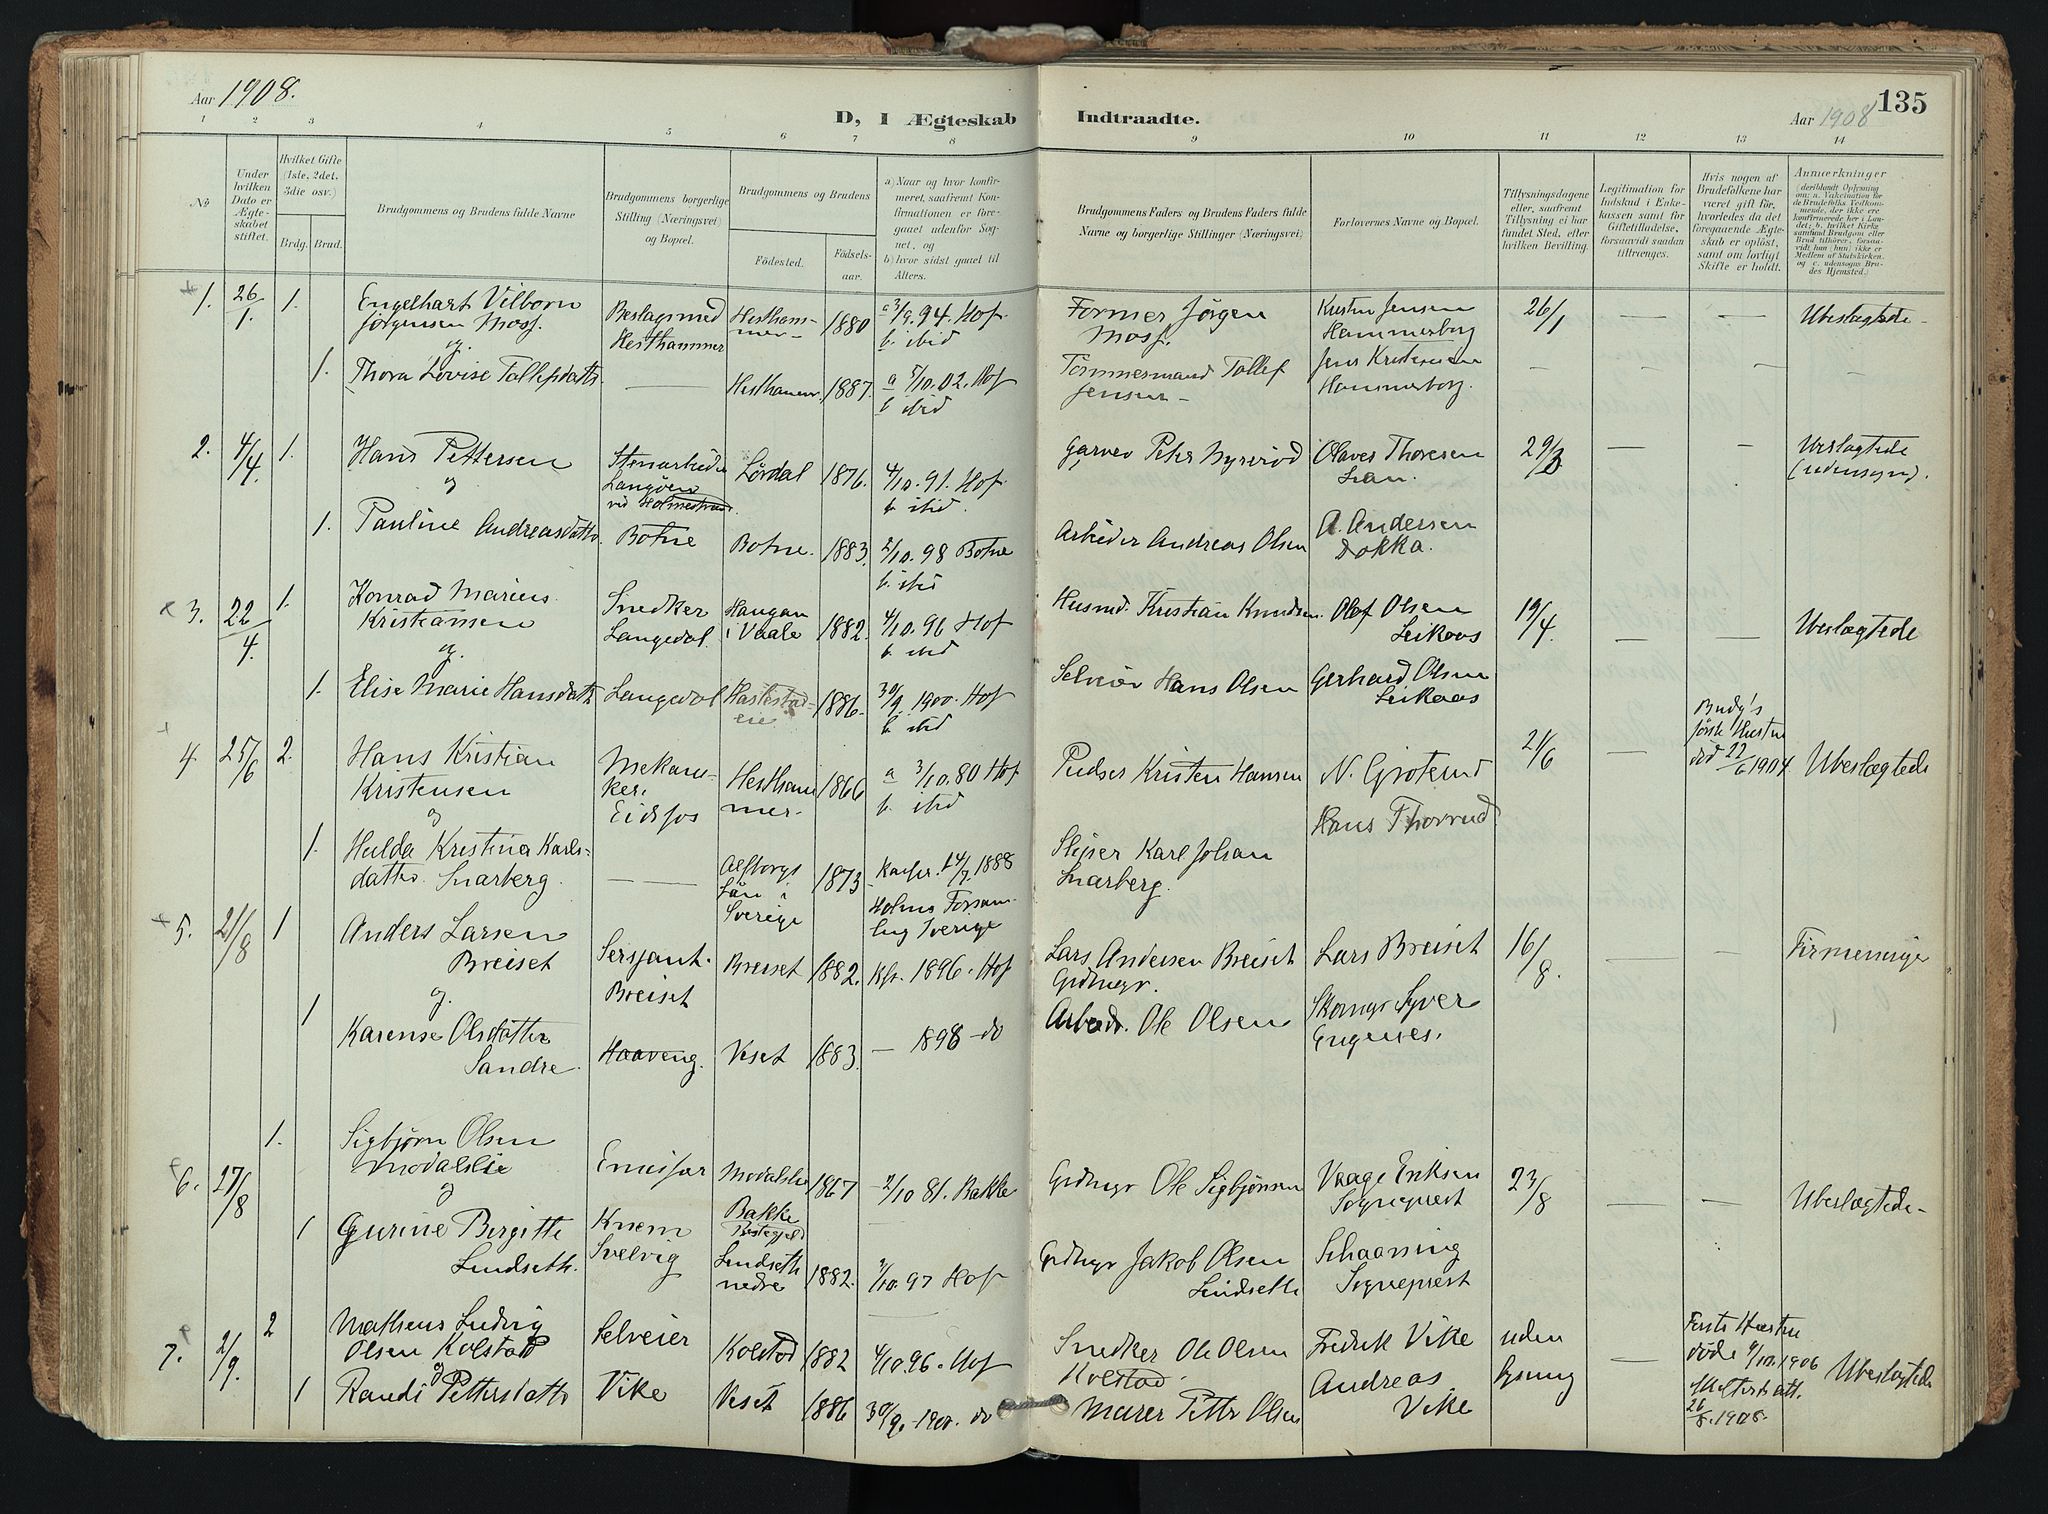 Aar 1908.
D, I Ægteskab Indtraadte.
Aar 1908
135
1 2 3 4 5 6 7 8 9 10 11 12 13 14
No
Under hvilken Dato er Ægteskabet stiftet.
Hvilket Gifte (1ste, 2det, 3die osv.)
Brdg. Brud.
Brudgommens og Brudens fulde Navne
Brudgommens borgerlige Stilling (Næringsvei) og Bopæl.
Brudgommens og Brudens
Fødested.
Fødselsaar.
a) Naar og hvor konfirmeret, saafremt Konfirmationen er foregaaet udenfor Sognet, og
b) hvor sidst gaaet til Alters.
Brudgommens Faders og Brudens Faders fulde Navne og borgerlige Stillinger (Næringsvei)
Forlovernes Navne og Bopæl.
Tillysningsdagene eller, saafremt Tillysning ei har fundet Sted, efter hvilken Bevilling.
Legitimation for Indskud i Enkekassen samt for Giftetilladelse, forsaavidt saadan tiltrænges.
Hvis nogen af Brudefolkene har været gift før, hvorledes da det foregaaende Ægteskab er opløst, samt om lovligt Skifte er holdt.
Anmærkninger
1. 26/1. 1. Engelhart Vilborn Jørgensen Mosj. Beslagsmed Hesthammer Hesthammer 1880 a 3/9. 94. Hof b. ibid Former Jörgen Mosj. Kristen Jensen Hammerborg 26/1 — — Ubeslægtede
og
1. Thora Lovise Tollefsdatter — Hesthamer 1887. a 5/10. 02. Hof b. ibid Tömmermand Tollef Jensen Jens Kristensen Hammerborg.
2. 4/4. 1. Hans Pettersen Stenarbeider Langøen ved Holmestrand. Lørdal 1876. 4/10. 91. Hof b. ibid. Garver Peter Nyrerød Olaves Thoresen Lian. 29/3 — — Ubeslægtede (udensogns).
og
1. Pauline Andreasdatter. Botne Botne. 1883. 2/10. 98 Botne b. ibid Arbeider Andreas Olsen A. Andersen Dokka.
3. 22/4. 1. Konrad Marius Kristiansen Snedker Langedal. Haugan i Vaale 1882. 4/10. 96 Hof b. ibid Husmd. Kristian Knudsen Olof Olsen Leikaas 19/4. — — Ubeslægtede
og.
1. Elise Marie Hansdatter Langedal 1886. 30/9. 1900. Hof b. ibid Selveier Hans Olsen Gerhard Olsen Leikaas
4. 25/6 2. Hans Kristian Kristensen Mekaniker. Eidsfos Hesthammer. 1866 a 3/10. 80 Hof b. ibid Pudser Kristen Hansen N. Grøterud 21/6 — Brudg's første Hustru död 22/6 1904 Ubeslægtede
og
1. Hulda Kristina Karlsdatter. Snarberg. — Elfborgs Län i Sverige 1873 Konfir. 14/7. 1888 Holms Forsamling Sverige Sliper Karl Johan Snarberg. Hans Thorrud
5. 21/8 1 Anders Larsen Breiset Sersjant. Breiset Breiset 1882. Kfr. 1896. Hof Lars Andersen Breiset Grdmgr. Lars Breiset 16/8. — — Firmeninger
og.
1 Karense Olsdatter Sandre. Haaveng. Veset 1883. — 1898 do Arbeidr. Ole Olsen Skomgr Syver Engenes.
6. 27/8 1. Sigbjørn Olsen Modalslie Emissær Modalslie Bakke Præstegjeld 1867 2/10 81. Bakke Grdmgr Ole Sigbjønsen Vaage Eriksen Sogneprest 23/8 — Ubeslægtede
og
1 Gurine Birgitte Lindseth. Knem Svelvig Lindseth nedre 1882. 3/10. 97 Hof Grdmgr Jakob Olsen Lindseth Schaaning Sogneprest
7. 2/9. 2 Matheus Ludvig Olsen Kolstad Selveier Kolstad 1882 4/10. 96. Hof Snedker Ole Olsen Kolstad. Fredrik Vike uden lysning — Første Hustru døde 9/10. 1906 Skifteratt. 26/8. 1908. Ubeslægtede
og
1 Randi Pettersdatter Vike Veset 1886 30/9. 1900. do Murer Petter Olsen Andreas Vike